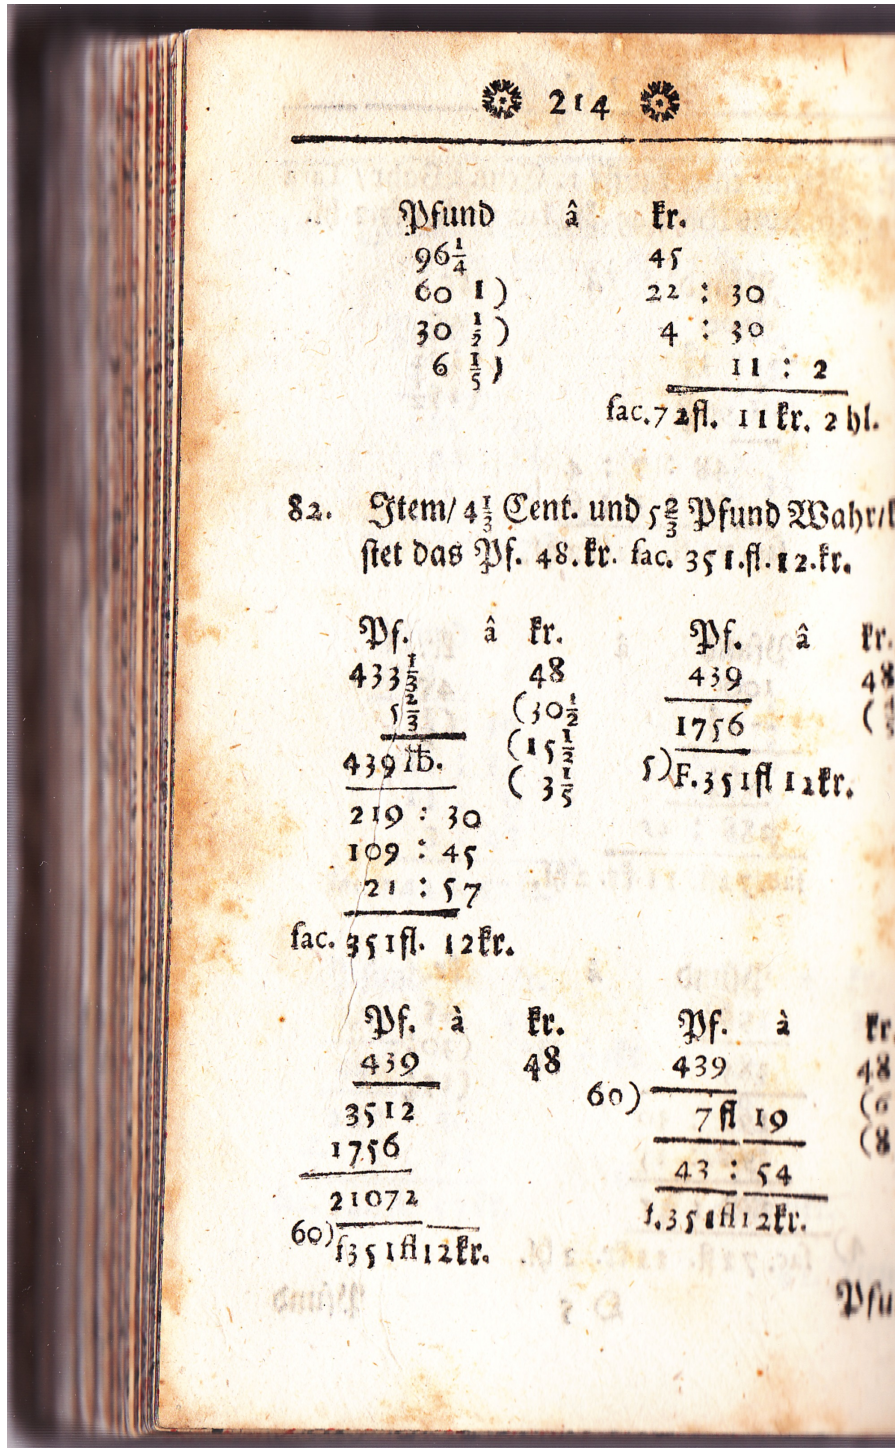 214
Pfund â kr.
96 1/4 45
60 1) 22 : 30
30 1/2) 4 : 30
6 1/5) 11 : 2
fac. 72fl. 11kr. 2hl.
82. Item/ 4 1/3 Cent. und 5 2/3 Pfund Wahr/
stet das Pf. 48. kr. fac. 351. fl. 12. kr.
Pf. â kr.
433 1/3 48
5 2/3 (30 1/2
439 lb. (15 1/2
( 3 1/5
219 : 30
109 : 45
21 : 57
fac. 351fl. 12kr.
Pf. â kr.
439 48
1756
5) F. 351fl 12kr.
Pf. à kr.
439 48
3512
1756
21072
60) f351fl12kr.
Pf. à kr.
439 48
60) 7fl 19 (6
43 : 54 (8
f. 351fl12kr.